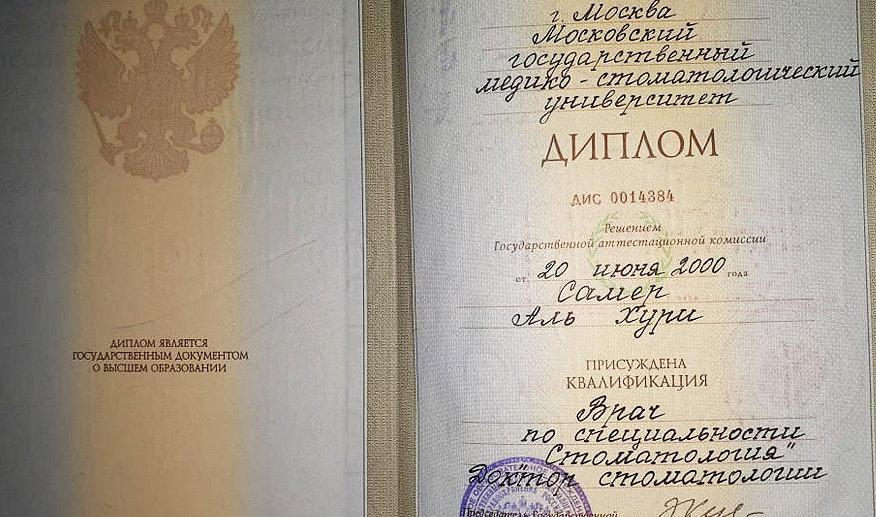 ДИПЛОМ ЯВЛЯЕТСЯ
ГОСУДАРСТВЕННЫМ ДОКУМЕНТОМ
О ВЫСШЕМ ОБРАЗОВАНИИ
г. Москва
Московский
государственный
медико-стоматологический
университет
ДИПЛОМ
ДИС 0014384
Решением
Государственной аттестационной комиссии
от 20 июня 2000 года
Самер
Аль Хури
ПРИСУЖДЕНА
КВАЛИФИКАЦИЯ
Врач
по специальности
"Стоматология"
Доктор стоматологии
Председатель Государственной